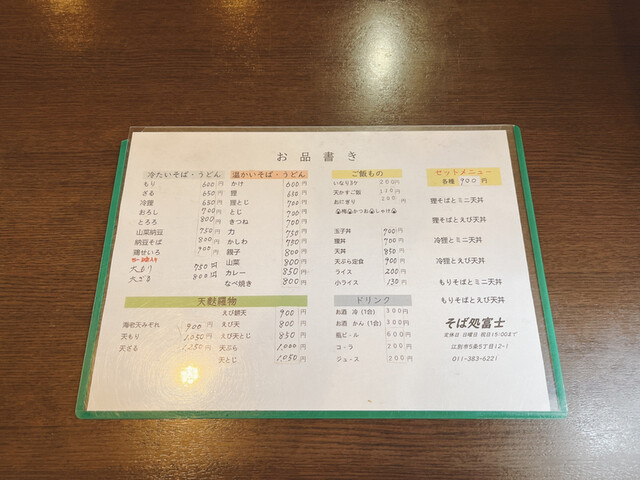 お品書き
冷たいそば・うどん
もり 600円
ざる 650円
冷狸 650円
おろし 700円
とろろ 800円
山菜納豆 750円
納豆そば 800円
鴨せいろ 900円
大もり 750円
大ざる 800円
温かいそば・うどん
かけ 600円
狸 650円
狸とじ 700円
とじ 700円
きつね 700円
力 750円
かしわ 750円
親子 800円
山菜 800円
カレー 850円
なべ焼き 800円
天麩羅物
海老天みぞれ 900円
天もり 1,050円
天ざる 1,250円
えび餅天 900円
えび天 800円
えび天とじ 850円
天ぷら 1,000円
天とじ 1,050円
ご飯もの
いなり3ケ 200円
天かすご飯 円
おにぎり 円
梅 かつお しゃけ
玉子丼 700円
狸丼 700円
天丼 850円
天ぷら定食 900円
ライス 200円
小ライス 130円
ドリンク
お酒 冷(1合) 300円
お酒 かん(1合) 300円
瓶ビール 600円
コーラ 200円
ジュース 200円
セットメニュー
各種 900円
狸そばとミニ天丼
狸そばとえび天丼
冷狸とミニ天丼
冷狸とえび天丼
もりそばとミニ天丼
もりそばとえび天丼
そば処富士
定休日 日曜日 祝日15:00まで
江別市5条5丁目12-1
011-383-6221